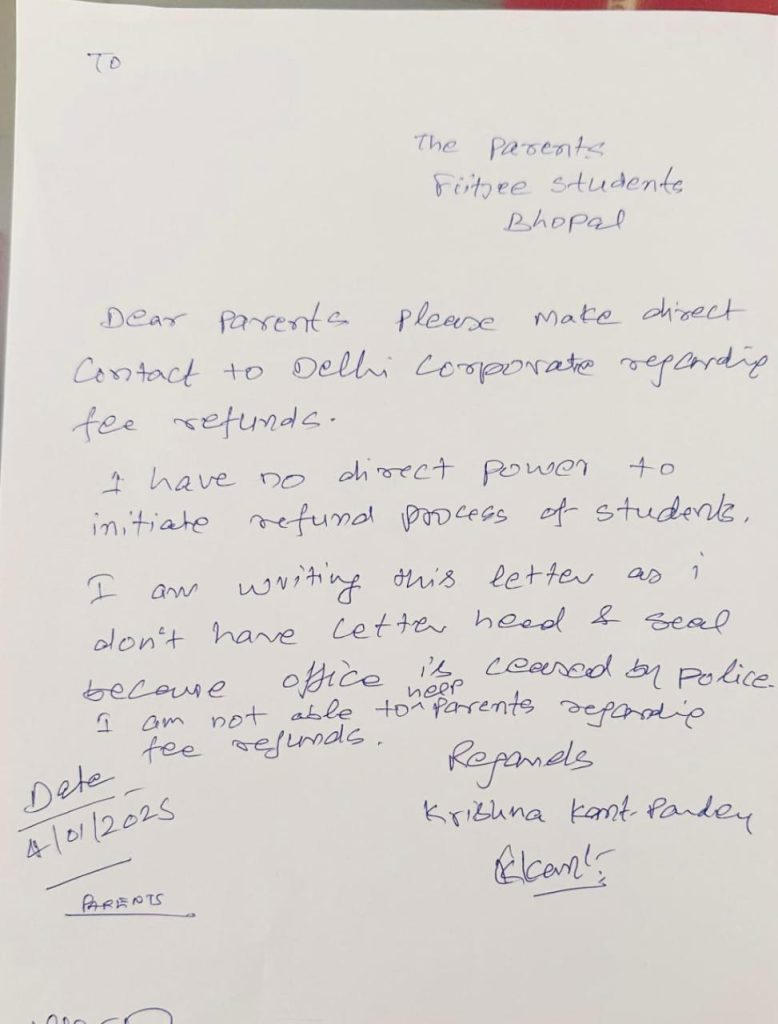 To
The Parents
Fiitjee students
Bhopal
Dear Parents Please make direct
Contact to Delhi Corporate regardig
fee refunds.
I have no direct power to
initiate refund process of students.
I am writing this letter as i
don't have letter head & seal
because office is ceased by police.
I am not able to help parents regardig
fee refunds.
Regards
Krishna Kant Pandey
Date
4/01/2025
PARENTS